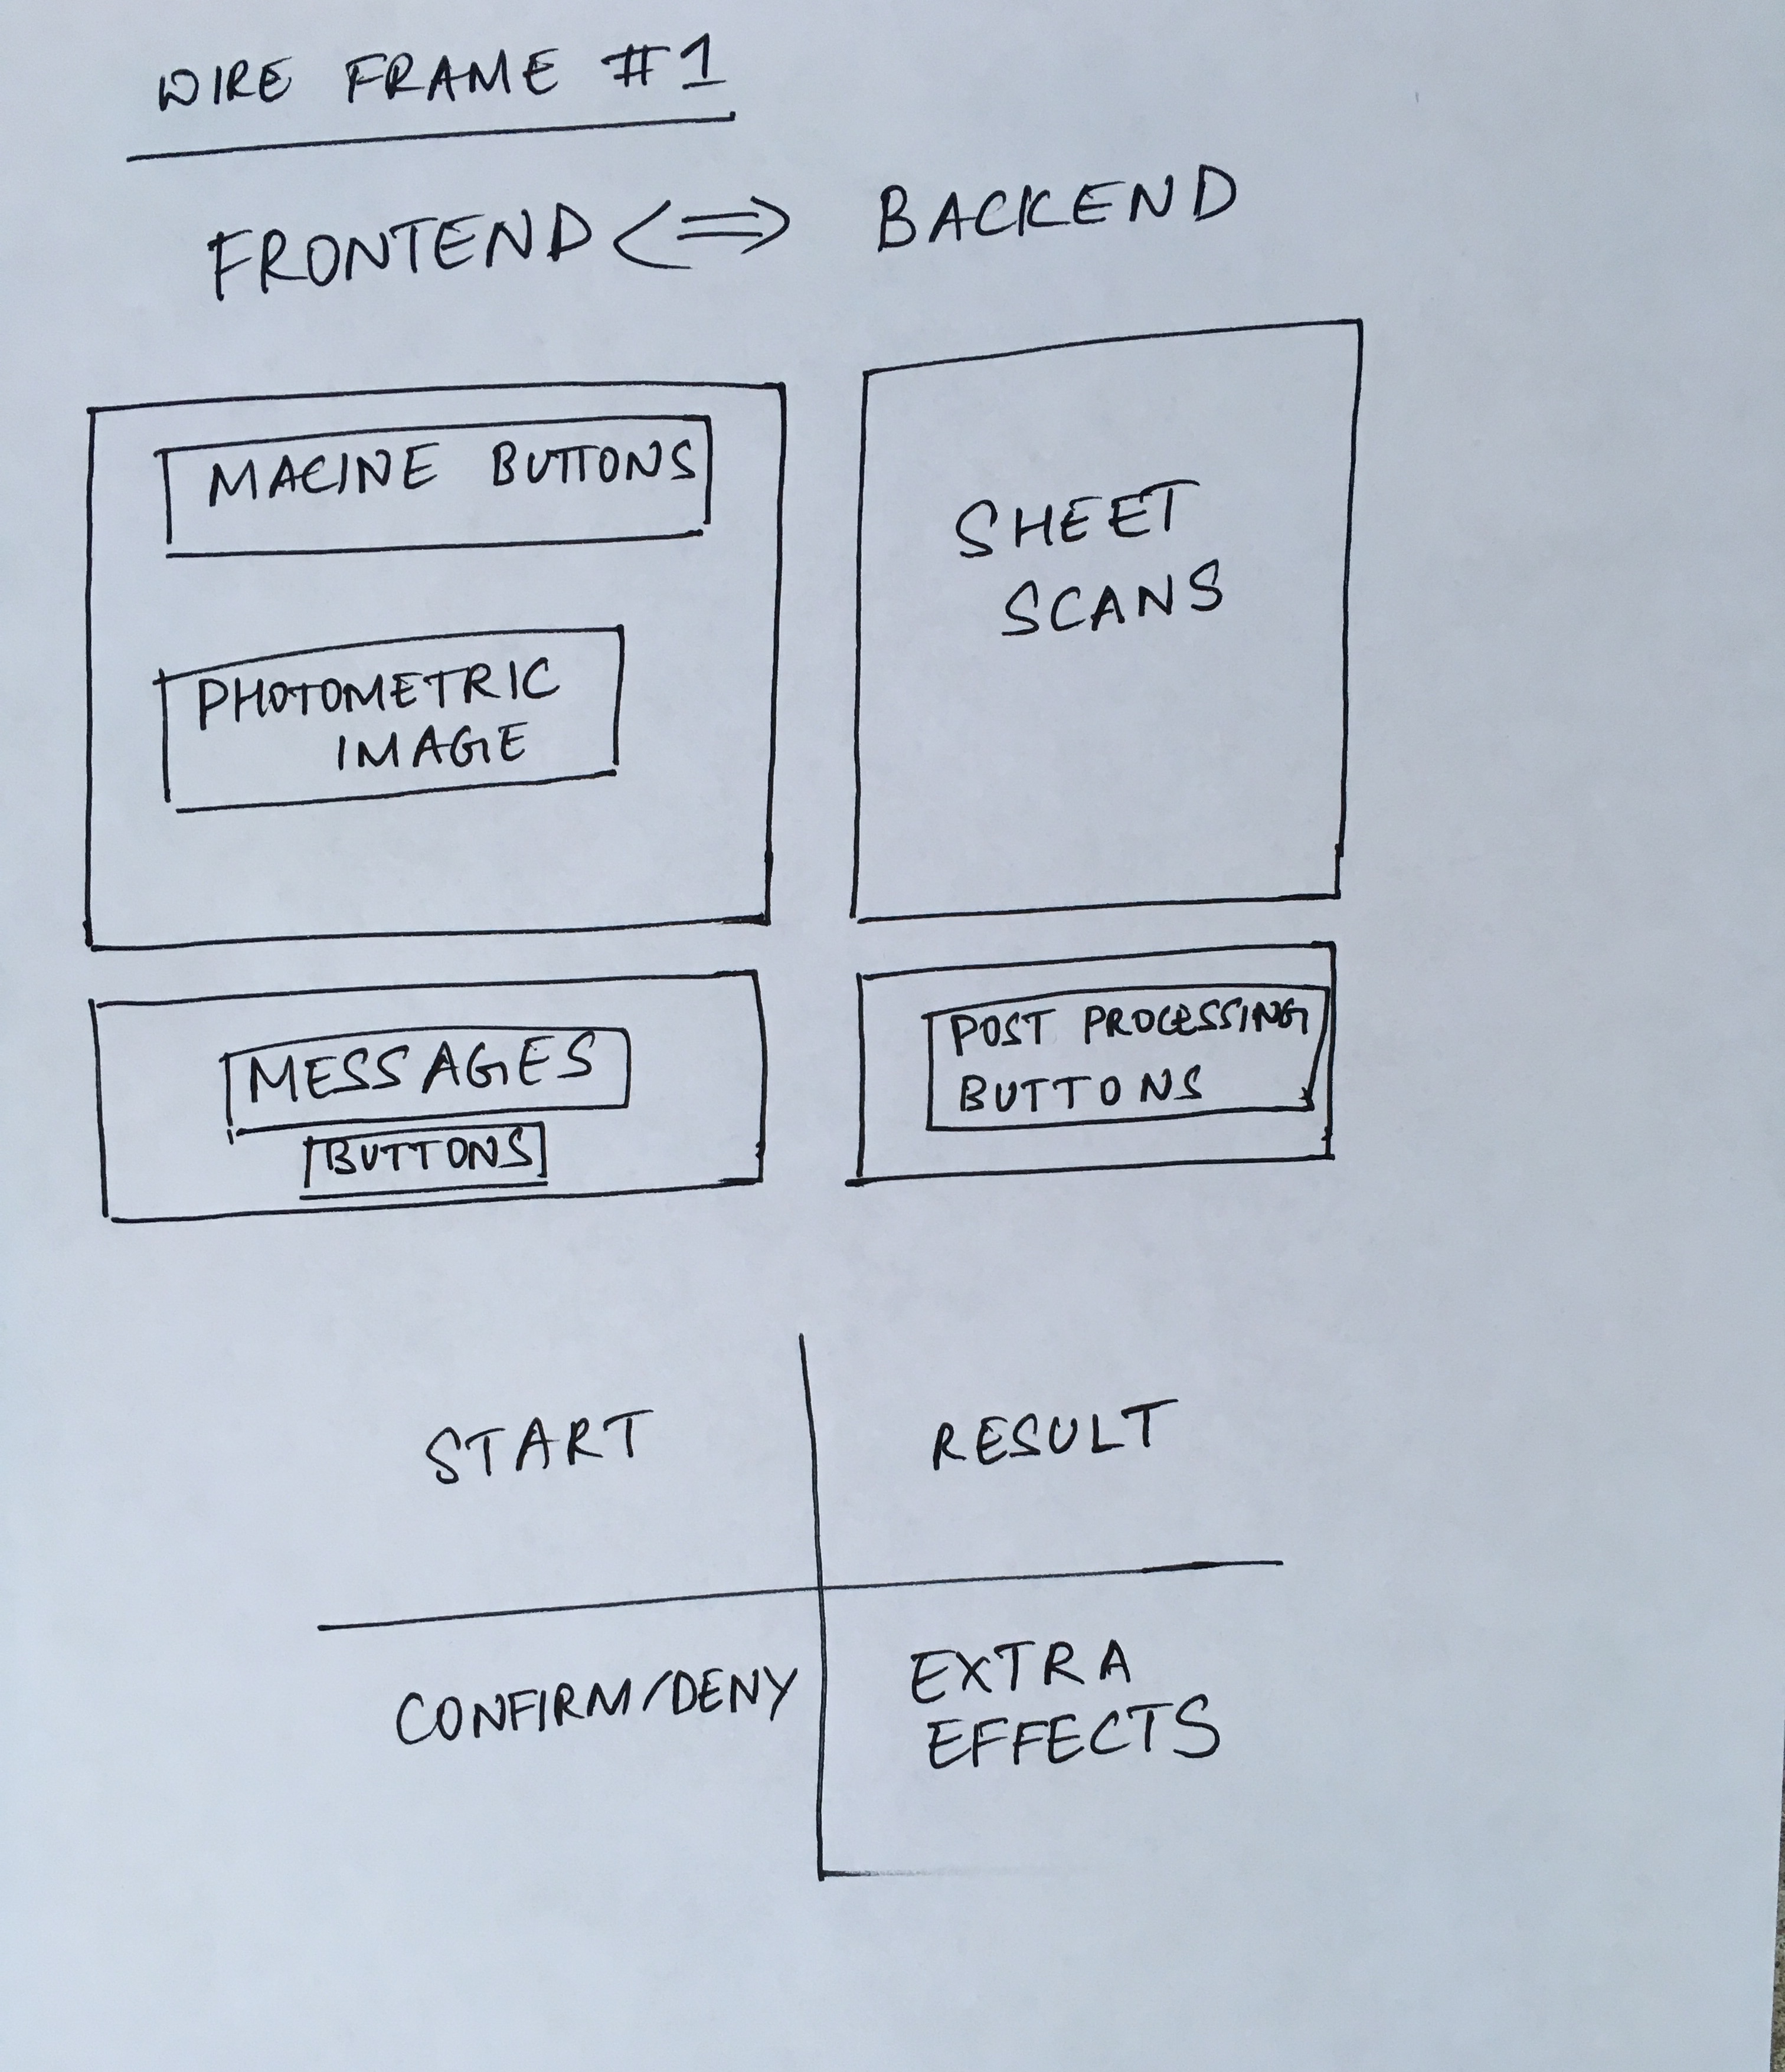 WIRE FRAME #1
FRONTEND <=> BACKEND
MACINE BUTTONS
PHOTOMETRIC
IMAGE
SHEET
SCANS
MESSAGES
BUTTONS
POST PROCESSING
BUTTONS
START
RESULT
CONFIRM/DENY
EXTRA
EFFECTS